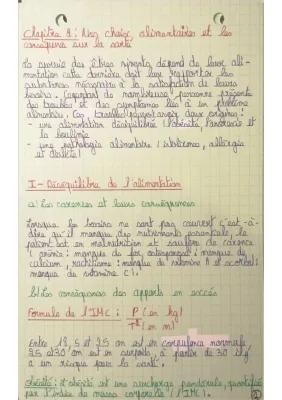 Chapitre 8 : Nos choix alimentaires et les
conséquences sur la santé
La survie des êtres vivants dépend de leur ali-
mentation cette dernière doit leur apporter les
nutriments nécessaires à la satisfaction de leurs
besoins. Cependant de nombreuses personnes présente
des troubles et des symptômes liés à un problème
alimentaire. Ces troubles peuvent avoir deux origines :
- une alimentation déséquilibrée (l'obésité, l'anorexie et
la boulimie
- une pathologie alimentaire : intolérance, allergies
et diabète)
I - Déséquilibre de l'alimentation
a) Les carences et leurs conséquences
Lorsque les besoins ne sont pas couvert c'est-à-
dire qu'il manque des nutriments essentiels, le
patient est en malnutrition et souffre de carence
(anémie : manque de fer, : manque de
calcium, rachitisme : manque de vitamine et scorbut :
manque de vitamine C).
b) Les conséquences des apports en excès
Formule de l'IMC : P (en kg)
T² (en m)
Entre 18,5 et 25 on est en corpulence normale,
25 et 30 on est en surpoids, à partir de 30 il y
a un risque pour la santé.
Obésité : l'obésité est une surcharge pondérale, quantifiée
par l'indice de masse corporelle (IMC).